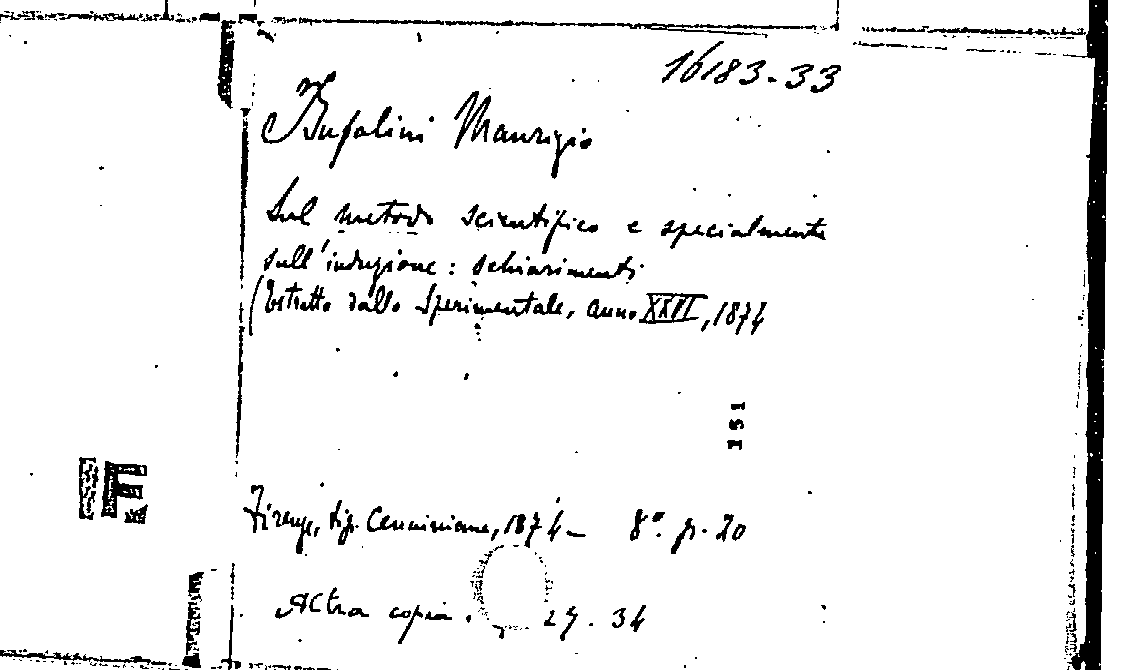 16183-33
Bufalini Maurizio
Sul metodo scientifico e specialmente
sull'induzione: schiarimenti
(Estratto dallo Sperimentale, anno XXVI, 1874
151
Firenze, tip. Cenniniana, 1874 - 8°. p. 20
Altra copia. 27. 34